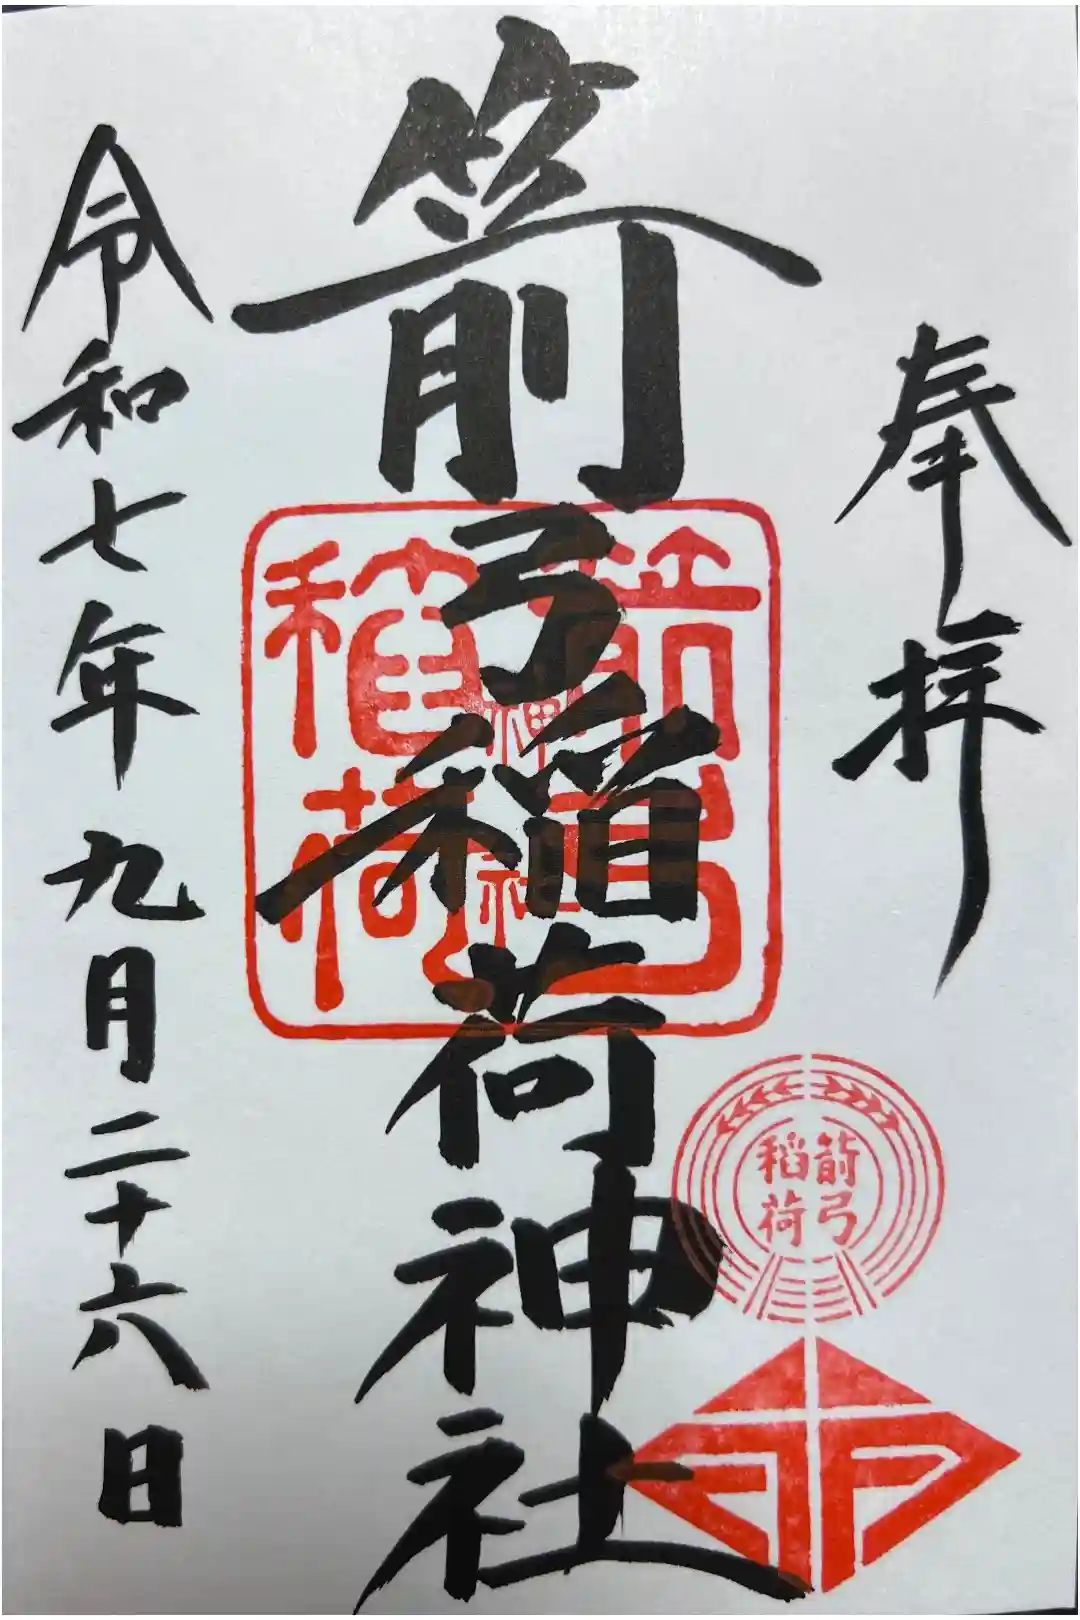 奉拝
箭弓稲荷神社
箭弓
稲荷
神社
箭弓
稲荷
令和七年九月二十六日